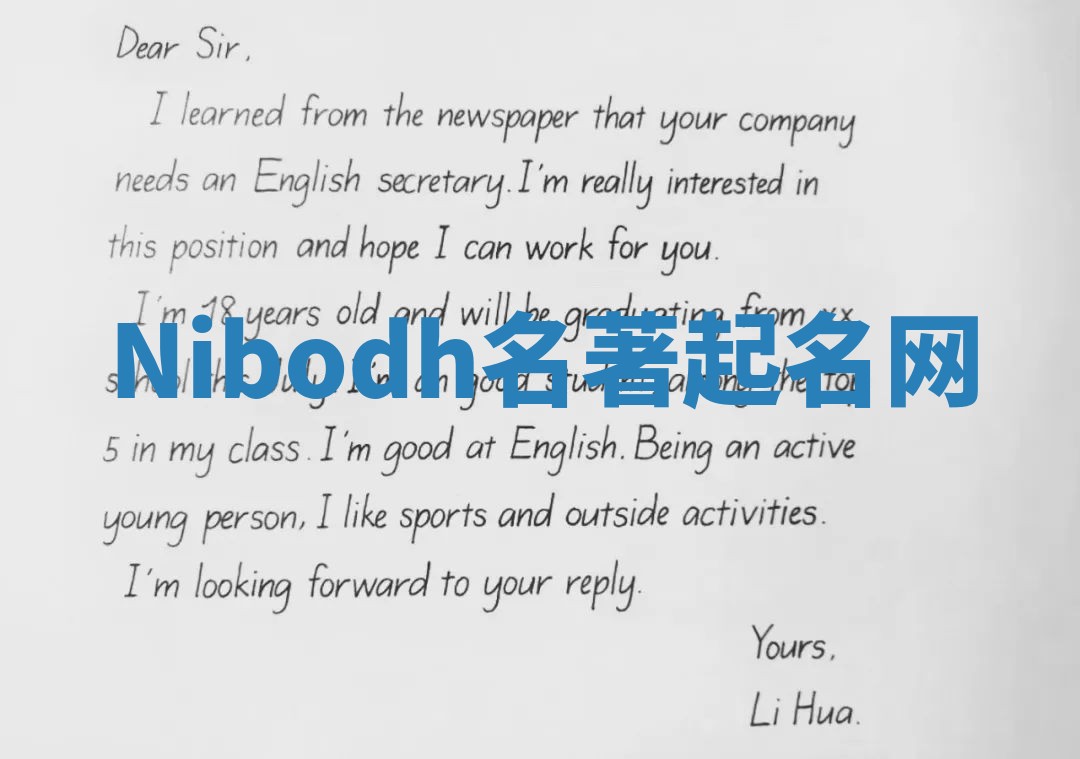 Dear Sir,
I learned from the newspaper that your company
needs an English secretary. I'm really interested in
this position and hope I can work for you.
I'm 18 years old and will be graduating from xx
Nibodh名著起名网
school this July. I'm an good student among the top
5 in my class. I'm good at English. Being an active
young person, I like sports and outside activities.
I'm looking forward to your reply.
Yours,
Li Hua.